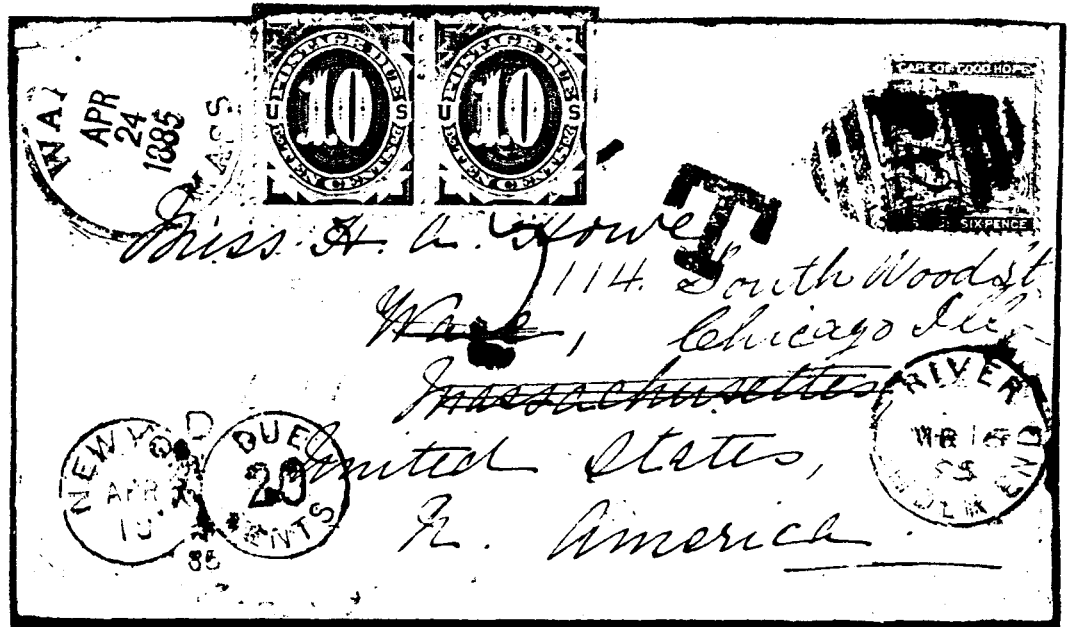 WA
APR
24
1885
MASS
POSTAGE DUE
10
U S
POSTAGE DUE
10
U S
CAPE OF GOOD HOPE
SIXPENCE
T
Miss. H. A. Howe,
114. South Wood st
Ware, Chicago Ill
Massachusettes
United States,
N. America
NEW YO
APR
DUE
20
CENTS
RIVER
END
85